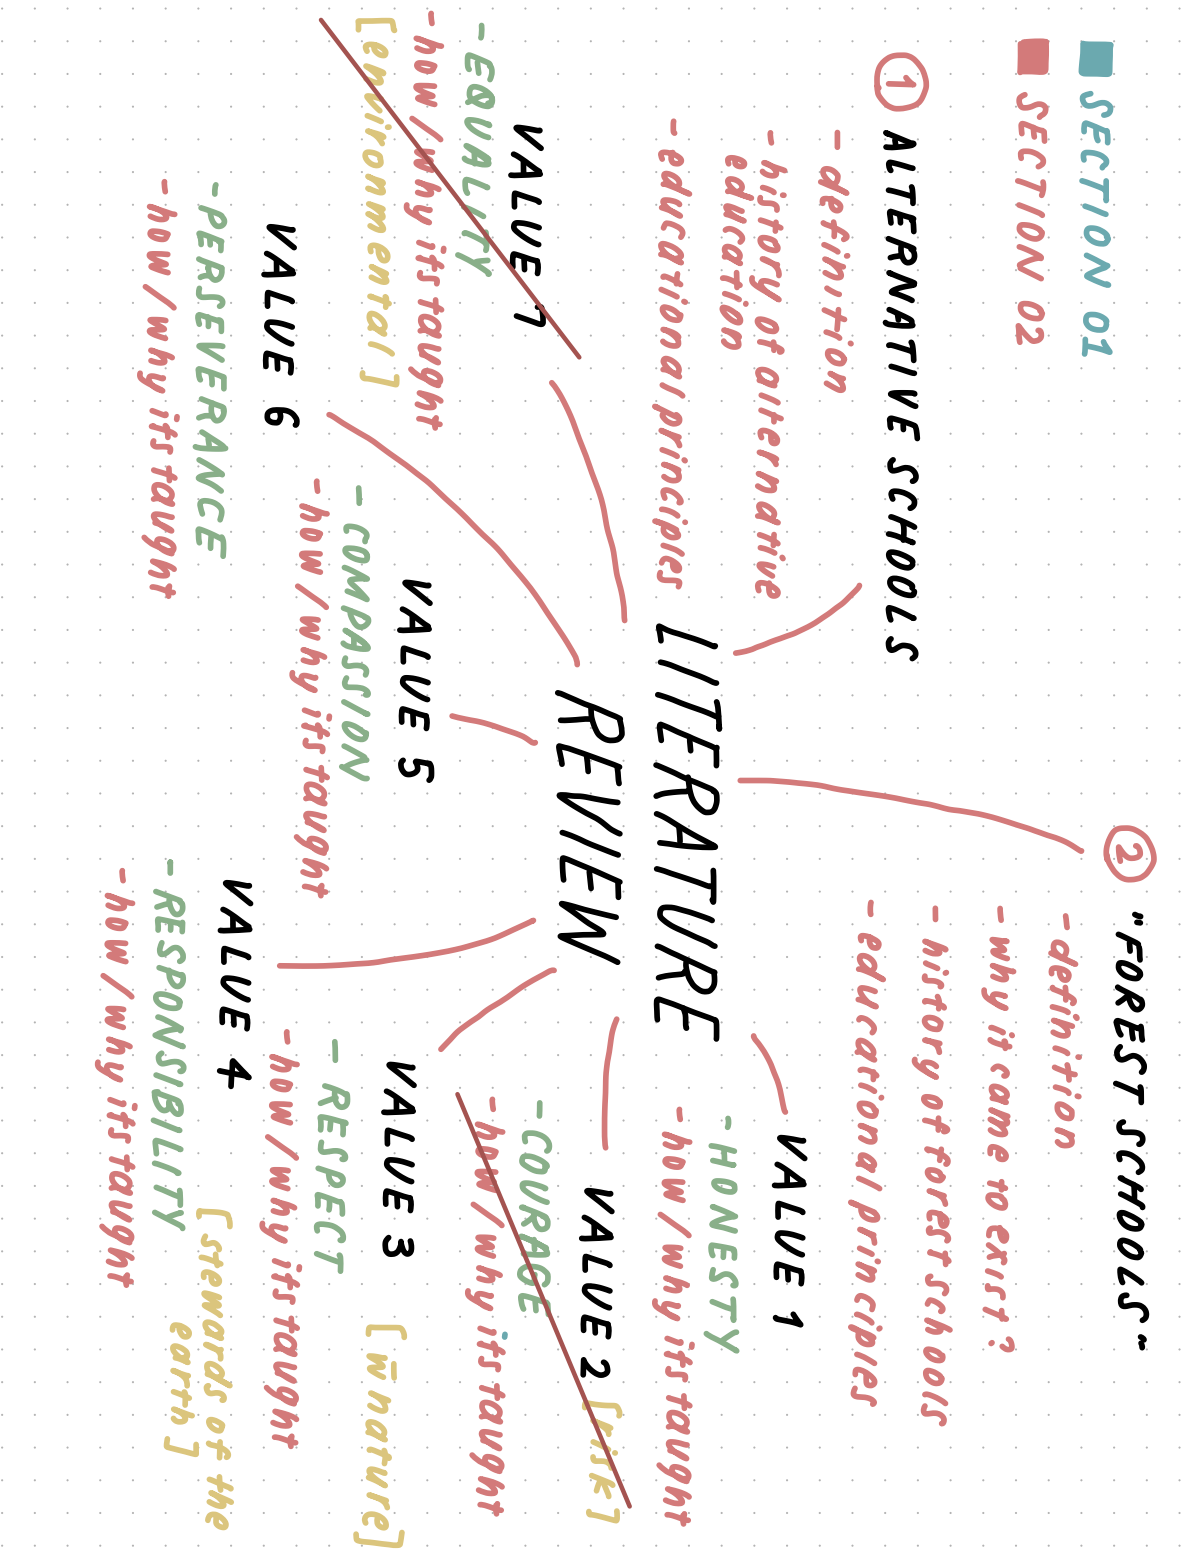 SECTION 01
SECTION 02
1 ALTERNATIVE SCHOOLS
- definition
- history of alternative
education
- educational principles
2 "FOREST SCHOOLS"
- definition
- why it came to exist?
- history of forest schools
- educational principles
LITERATURE
REVIEW
VALUE 1
- HONESTY
- how / why its taught
VALUE 2 [risk]
- COURAGE
- how / why its taught
VALUE 3 [w̄ nature]
- RESPECT
- how / why its taught
VALUE 4
- RESPONSIBILITY [stewards of the
earth]
- how / why its taught
VALUE 5
- COMPASSION
- how / why its taught
VALUE 6
- PERSEVERANCE
- how / why its taught
VALUE 7
- EQUALITY
- how / why its taught
[environmental]